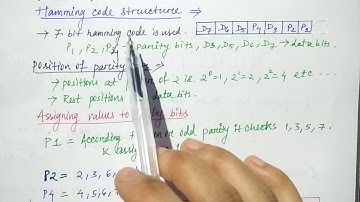 Hamming code structure ⇒
D7 D6 D5 P4 D3 P2 P1
→ 7 bit hamming code is used.
P1, P2, P4 → parity bits, D3, D5, D6, D7 → data bits.
Position of parity
→ positions at of 2 i.e. 2⁰=1, 2¹=2, 2²=4 etc ...
→ Rest positions data bits.
Assigning values to bits
P1 = According or odd parity it checks 1, 3, 5, 7.
& assign
P2 = 2, 3, 6,
P4 = 4, 5, 6,